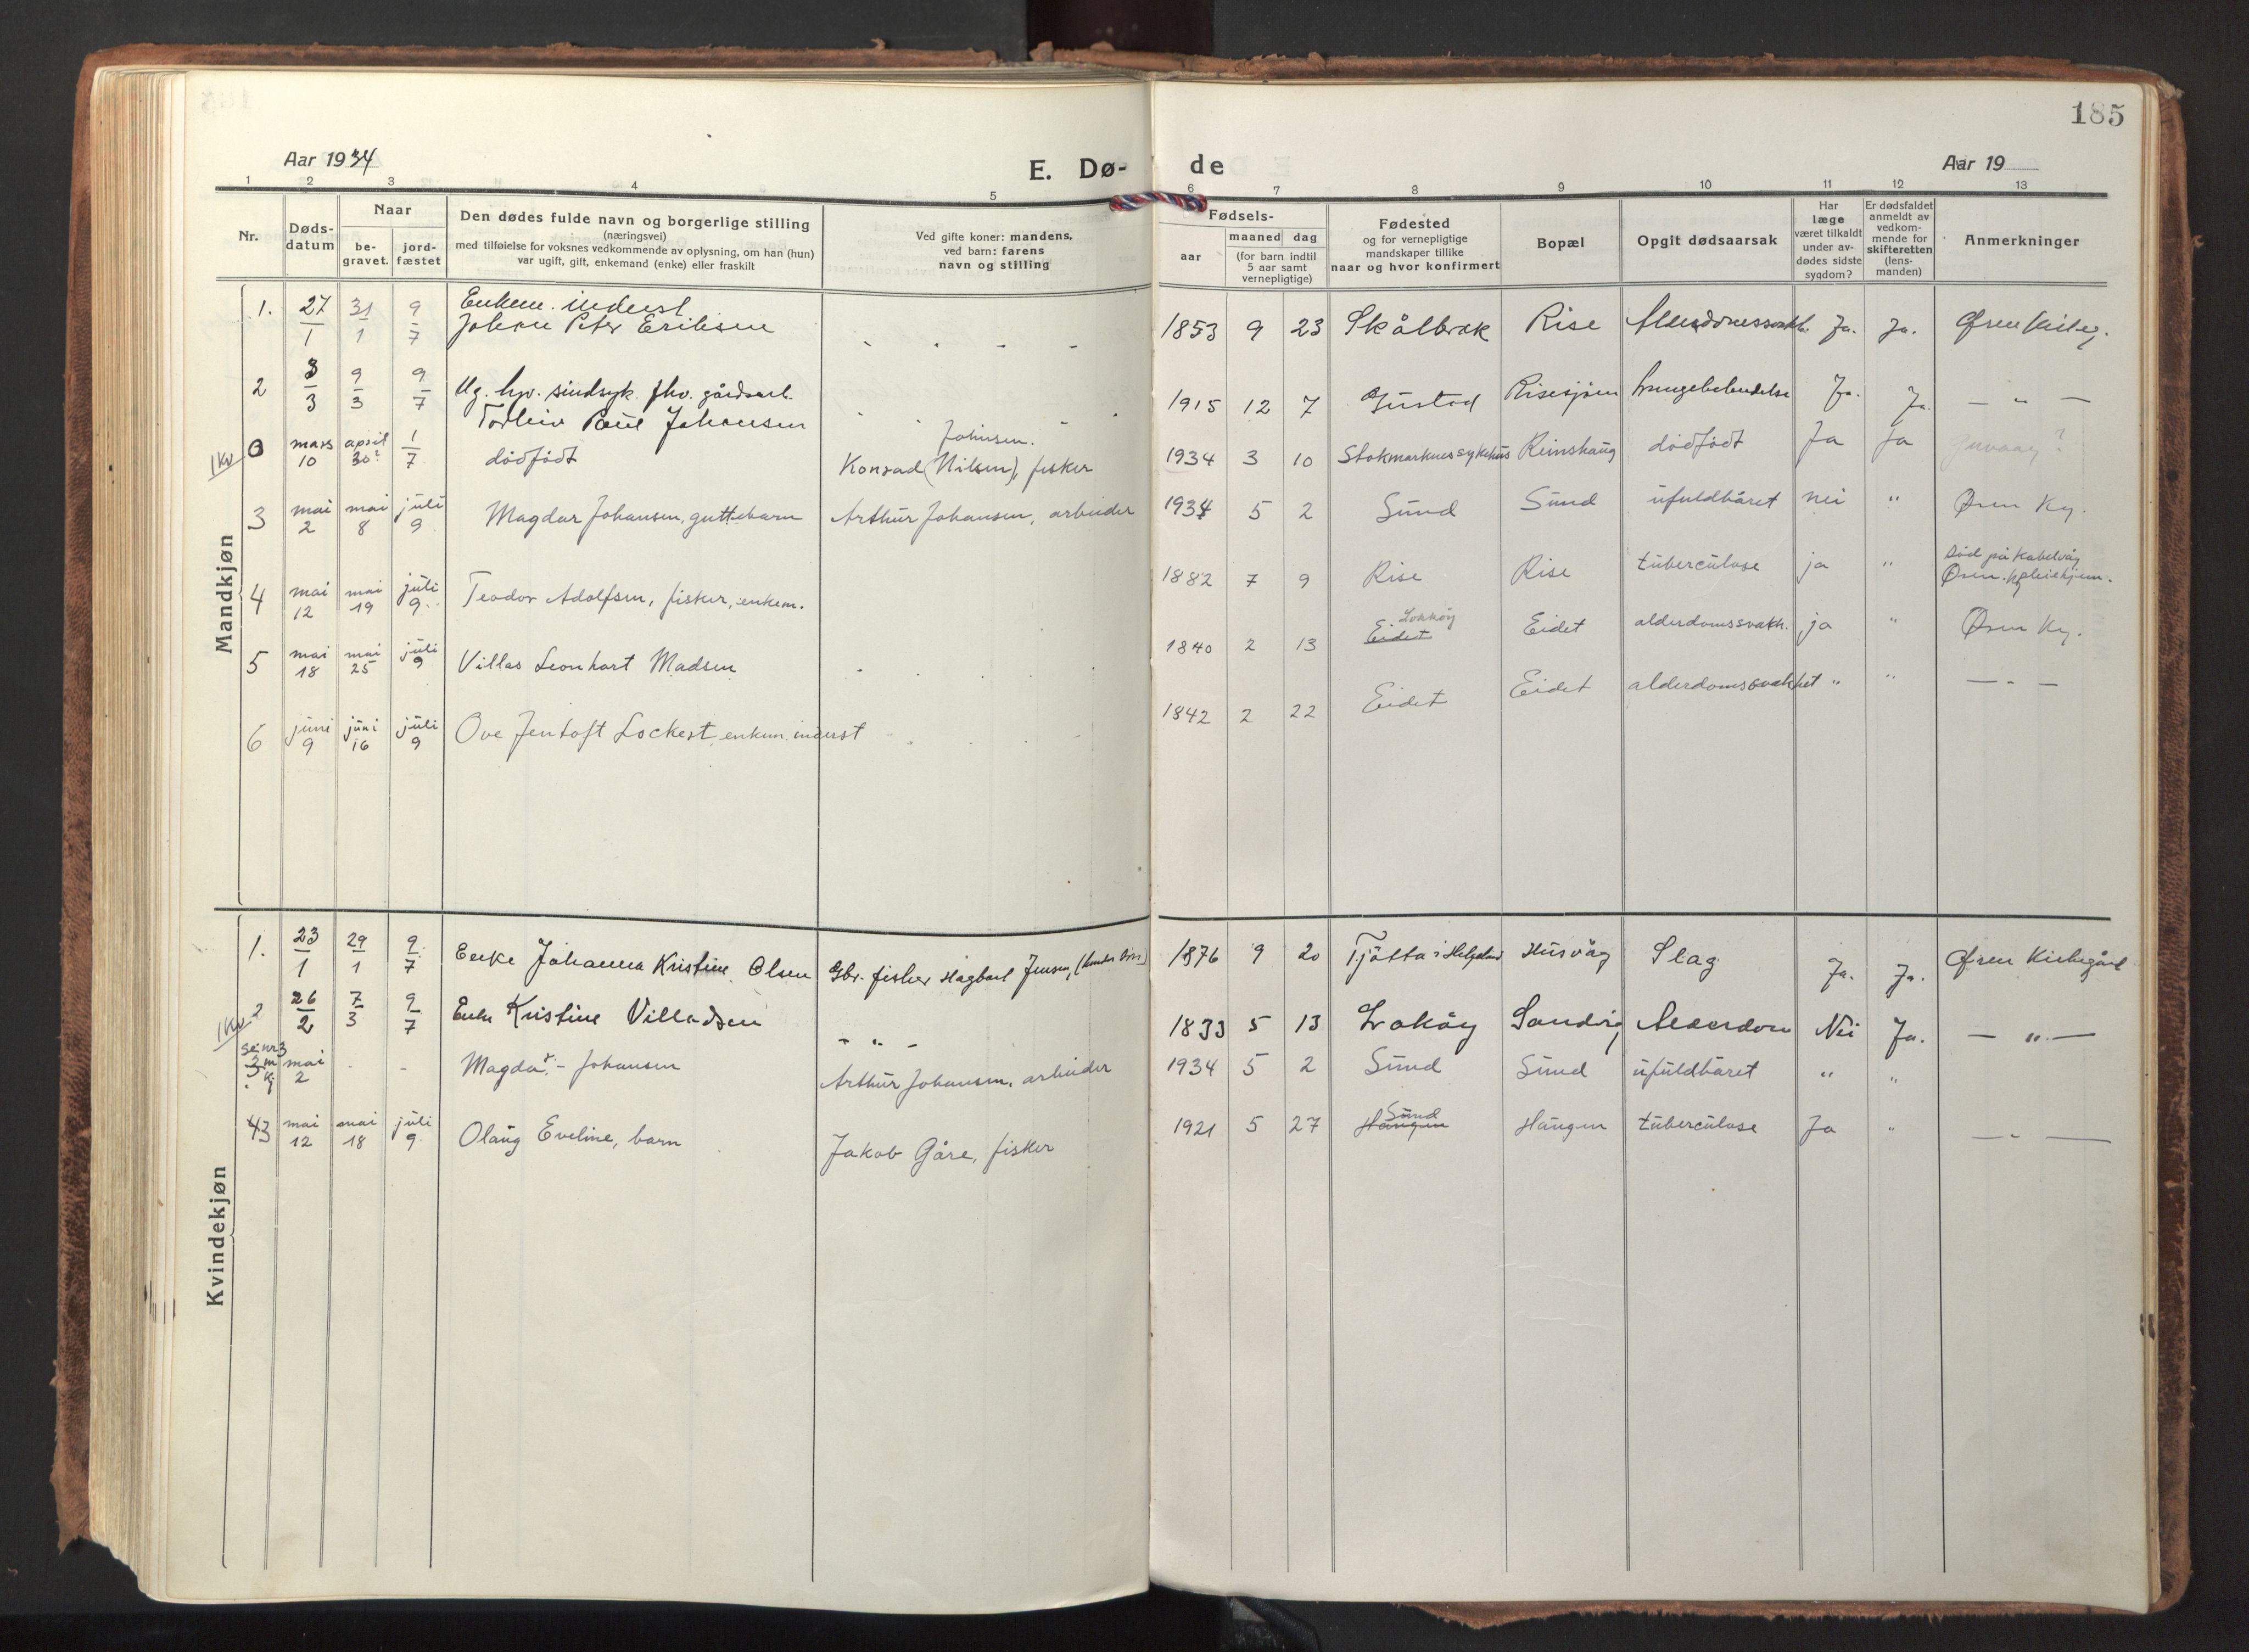 185
Aar 1934
E. Dø-
de
Aar 19
1 2 3 4 5 6 7 8 9 10 11 12 13
Nr.
Døds-
datum
Naar
be-
gravet.
jord-
fæstet
Den dødes fulde navn og borgerlige stilling
(næringsvei)
med tilføielse for voksnes vedkommende av oplysning, om han (hun)
var ugift, gift, enkemand (enke) eller fraskilt
Ved gifte koner: mandens,
ved barn: farens
navn og stilling
Fødsels-
aar
maaned dag
(for barn indtil
5 aar samt
vernepligtige)
Fødested
og for vernepligtige
mandskaper tillike
naar og hvor konfirmert
Bopæl
Opgit dødsaarsak
Har
læge
været tilkaldt
under av-
dødes sidste
sygdom?
Er dødsfaldet
anmeldt av
vedkom-
mende for
skifteretten
(lens-
manden)
Anmerkninger
Mandkjøn
1. 27/1 31/1 9/7 Enkem. inderst
Johan Peter Eriksen - - - - 1853 9 23 Skålbrek Rise Ja. Ja.
2 3/3 9/3 9/7 Ug. hjv. sindsyk. fhv. gårdsarb.
Torleiv Paul Johansen - - - 1915 12 7 Gustad Risesjøen Lungebetendelse Ja. Ja. — " —
1 kv 0 mars 10 april 30? 1/7 dødfødt Johnsen.
Konrad (Nilsen), fisker 1934 3 10 Stokmarknes sykehus Reinshaug dødfødt Ja Ja
3 mai 2 mai 8 juli 9 Magdar Johansen, guttebarn Arthur Johansen, arbeider 1934 5 2 Sund Sund ufuldbåret nei " Øsen Kg.
4 mai 12 mai 19 juli 9. Teodor Adolfsen, fisker, enkem. 1882 7 9 Rise Rise tuberculose ja " død på Kabelvåg
pleiehjem. Øsen Kg
5 mai 18 mai 25 juli 9 Villas Leonhart Madsen - - - 1840 2 13 Eidet Eidet alderdomssvakh. ja " Øsen Kg.
6 juni 9 juni 16 juli 9 Ove Jentoft Lockert, enkem. inderst 1842 2 22 Eidet Eidet alderdomssvakhet " " — " —
Kvindekjøn
1. 23/1 29/1 9/7 Enke Johanna Kristine Olsen Gbr. fisker Hagbart Jensen, 1876 9 20 Tjøtta i Helgeland Husvåg Slag Ja. Ja. Øsen Kirkegård
1 kv 2 26/2 7/3 9/7 Enke Kristine Villadsen - " - 1833 5 13 Lokøy Sandvig Alderdom Nei Ja. — " —
se nr 3 m kj 3 mai 2 - - Magda? - Johansen Arthur Johansen, arbeider 1934 5 2 Sund Sund ufuldbåret " "
43 mai 12 mai 18 juli 9. Olaug Eveline, barn Jakob Gåre, fisker 1921 5 27 Sund
Haugen Haugen tuberculose Ja " — " —